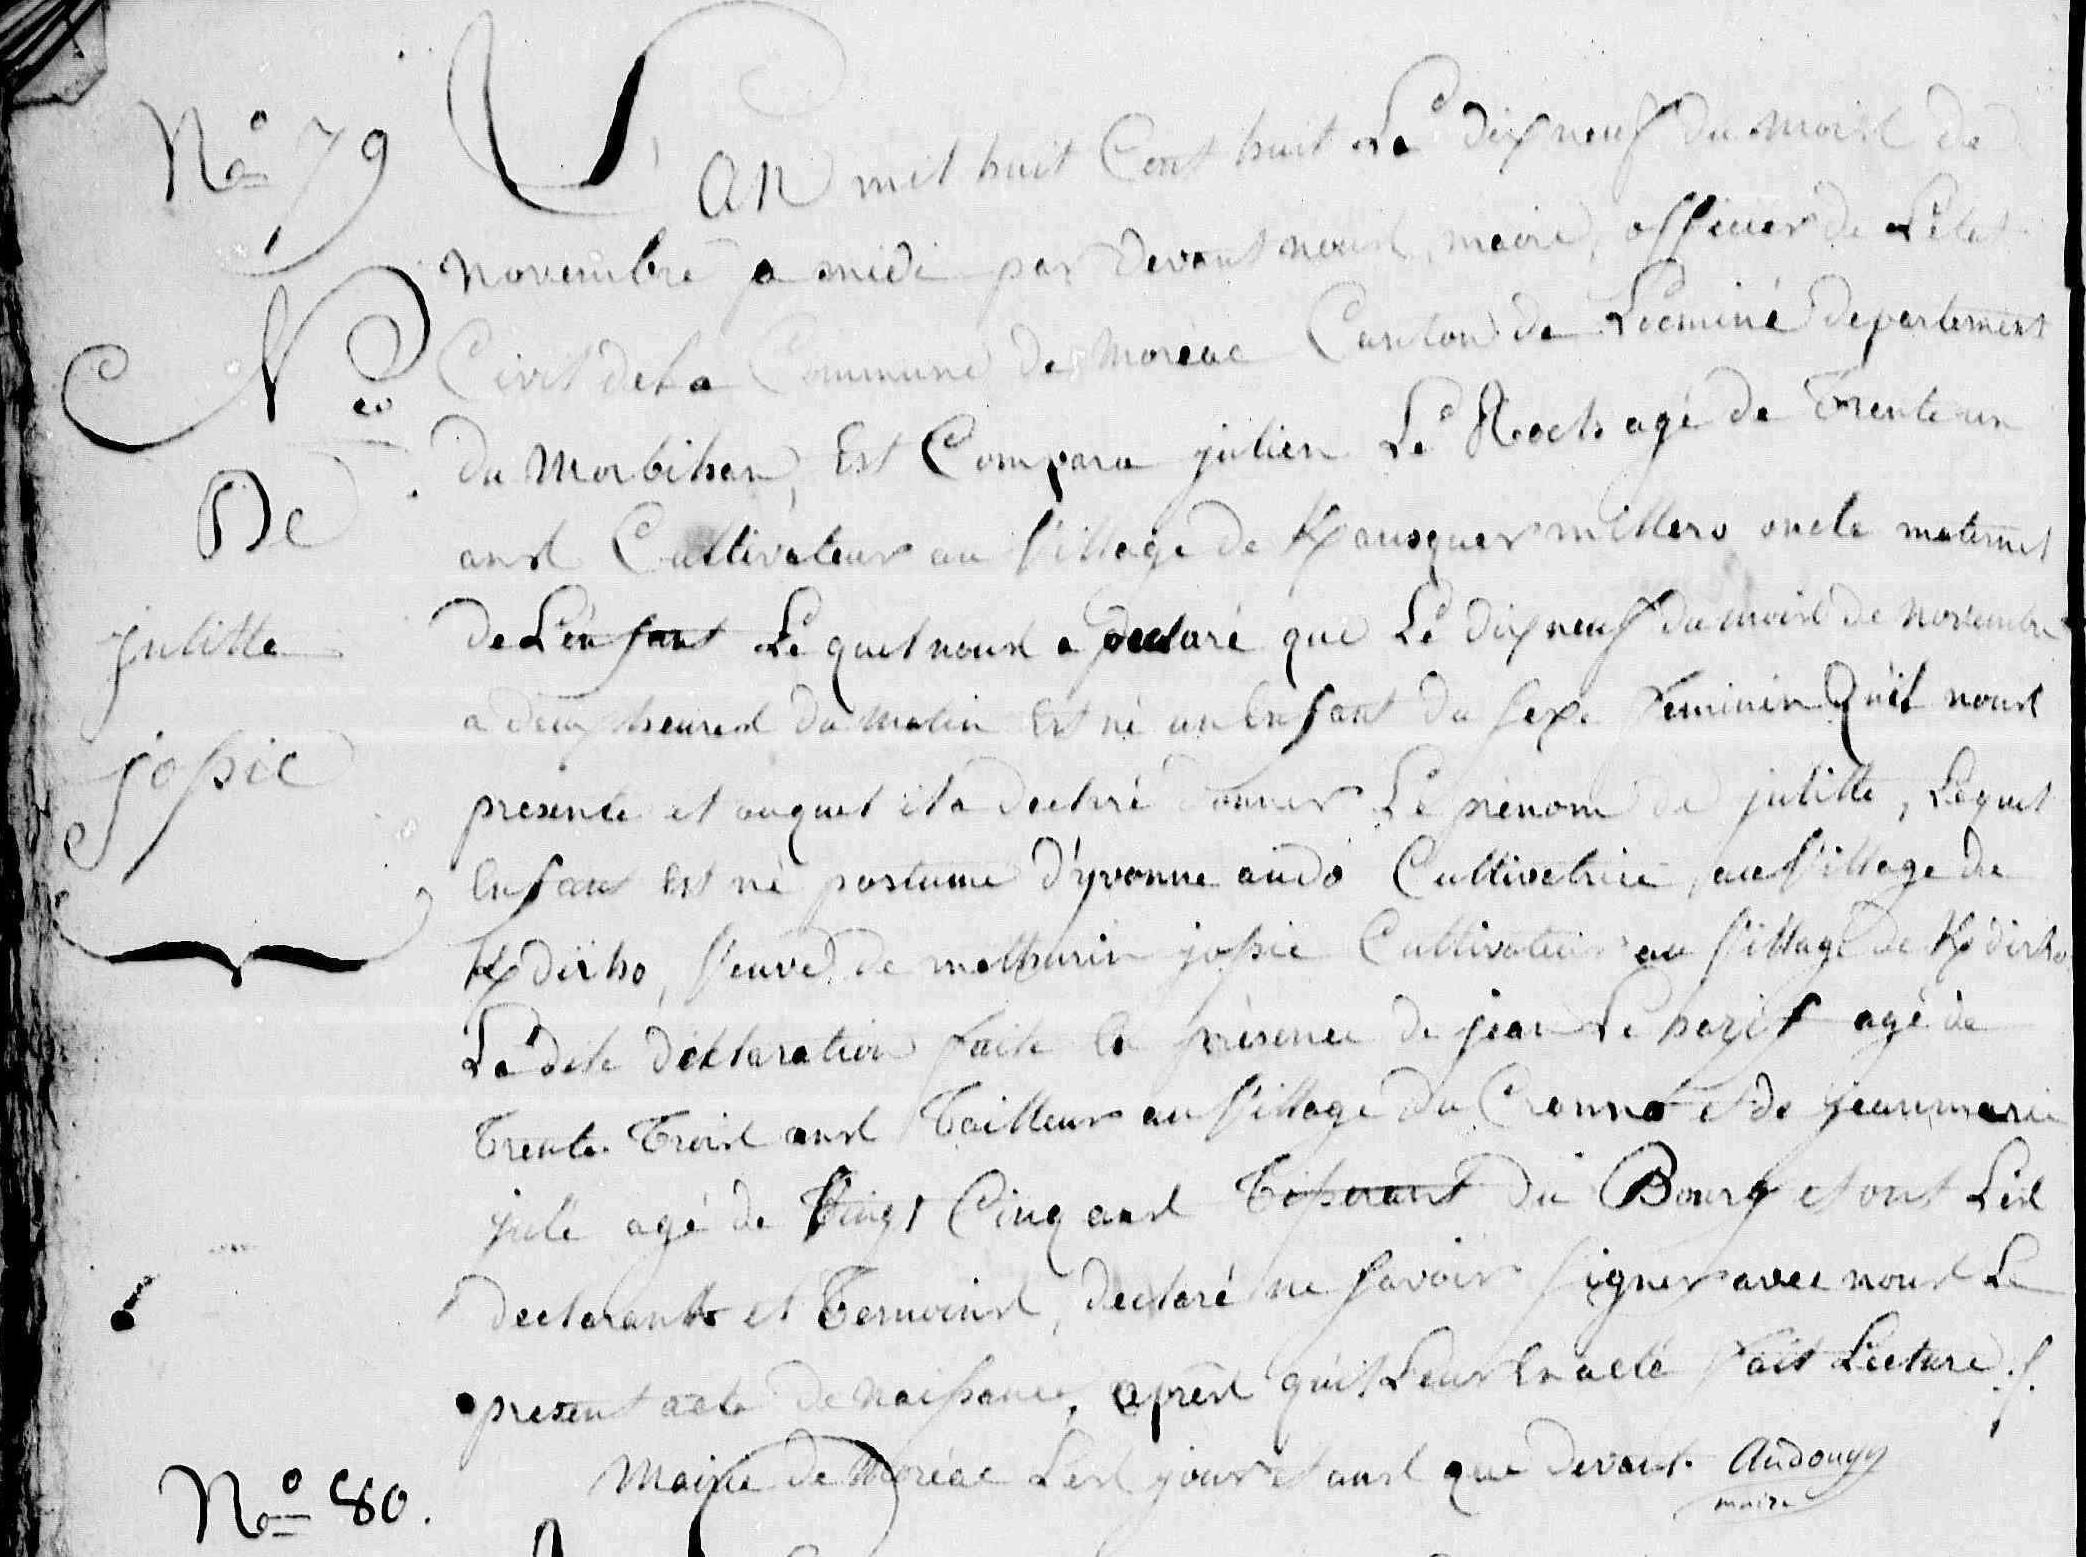 No 79
L'an mil huit Cent huit Le dix neuf du mois de
novembre a midi par devant nous, maire, officier de L'état
Civil de La Commune de moréac Canton de Locminé departement
du Morbihan, Est Comparu julien Le Roch agé de Trente un
ans Cultivateur au Village de oncle maternel
de L'énfant Le quel nous a declaré que Le dix neuf du mois de novembre
a deux heures du matin Est né un Enfant du sexe feminin Qu'il nous
presente et auquel il a declaré donner Le prénom de julitte, Lequel
Enfant Est né postume d'yvonne audo Cultivatrice, au Village de
Kdirho, Veuve de mathurin jossic Cultivateur au Village de Kdirho
La dite déklaration faite En présence de jean Le agé de
Trente Trois ans Tailleur au Village du et de jean marie
julé agé de Vingt Cinq ans Tisserant du Bourg et ont Les
declarants et Temoins, declaré ne savoir signer avec nous Le
present acte de naissance, après qu'il Leur En a eté fait Lecture ./.
Mairie de Moréac Les jour et ans que devant. Audouyy
maire
N
De
julitte
jossic
No 80.